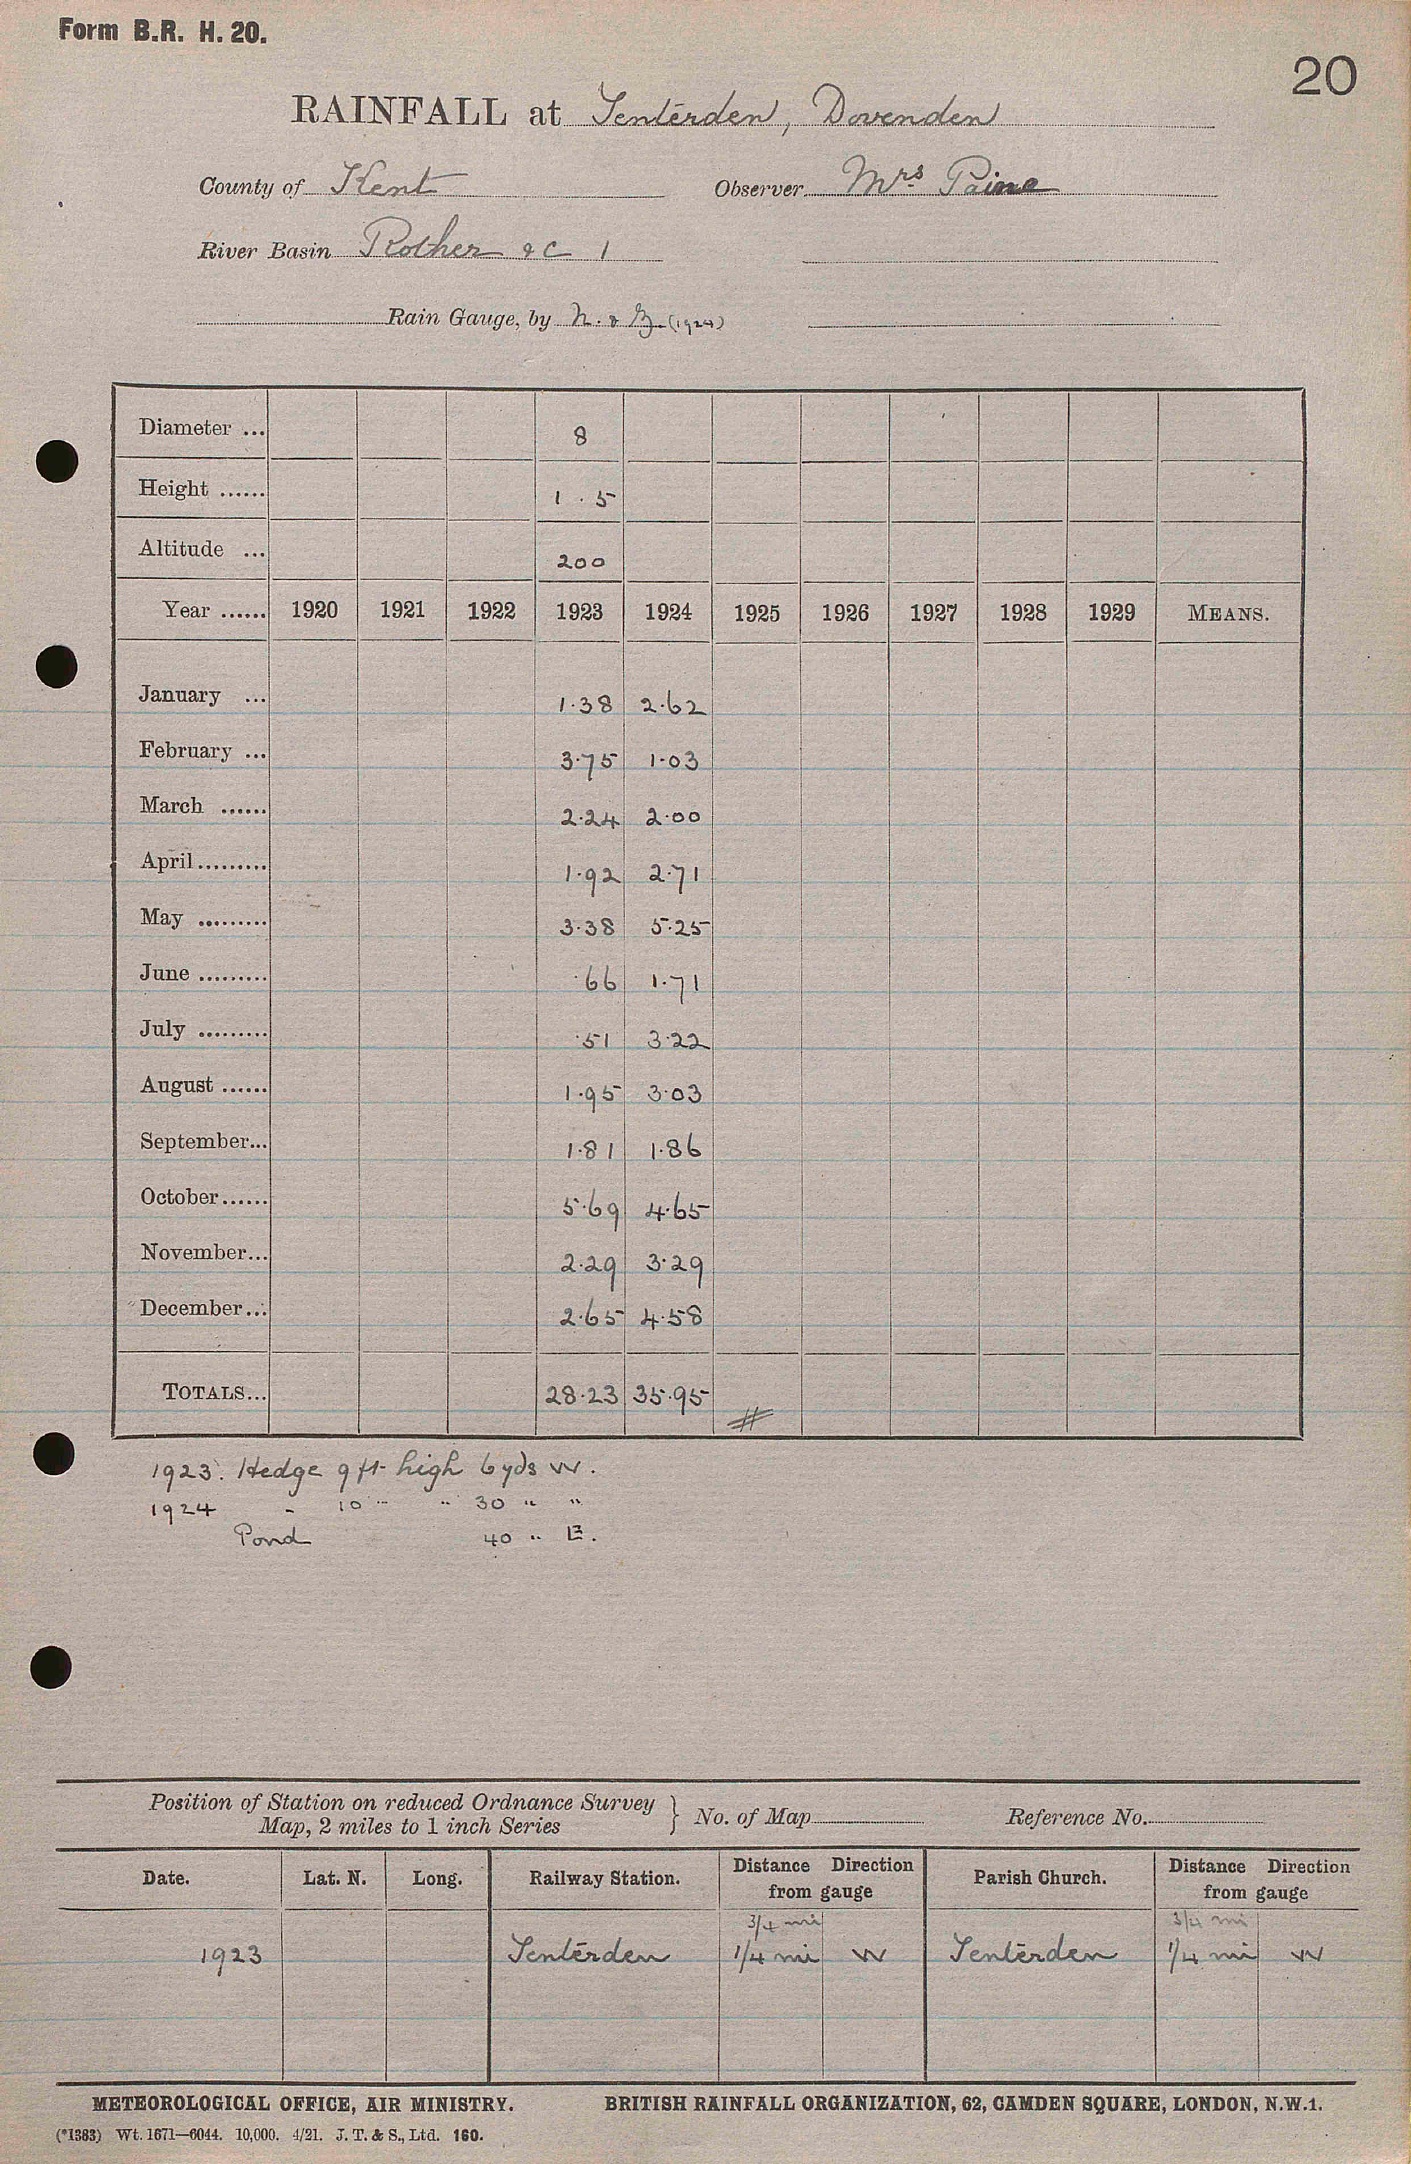 Form B.R. H. 20.
20
RAINFALL at Tenterden, Dovenden
County of Kent Observer Mrs Paine
River Basin Rother &c 1
Rain Gauge, by N. & Z. (1924)
Diameter ... 8
Height ...... 1 . 5
Altitude ... 200
Year ...... 1920 1921 1922 1923 1924 1925 1926 1927 1928 1929 MEANS.
January ... 1.38 2.62
February ... 3.75 1.03
March ...... 2.24 2.00
April ......... 1.92 2.71
May ......... 3.38 5.25
June ......... .66 1.71
July ......... .51 3.22
August ...... 1.95 3.03
September... 1.81 1.86
October ...... 5.69 4.65
November... 2.29 3.29
December... 2.65 4.58
TOTALS... 28.23 35.95
1923. Hedge 9 ft high 6 yds W.
1924 - 10 " " 30 " "
Pond 40 " E.
Position of Station on reduced Ordnance Survey
Map, 2 miles to 1 inch Series } No. of Map Reference No.
Date. Lat. N. Long. Railway Station. Distance Direction from gauge Parish Church. Distance Direction from gauge
3/4 mi 3/4 mi
1923 Tenterden 1/4 mi W Tenterden 1/4 mi W
METEOROLOGICAL OFFICE, AIR MINISTRY. BRITISH RAINFALL ORGANIZATION, 62, CAMDEN SQUARE, LONDON, N.W.1.
(*1383) Wt. 1671—6044. 10,000. 4/21. J. T. & S., Ltd. 160.